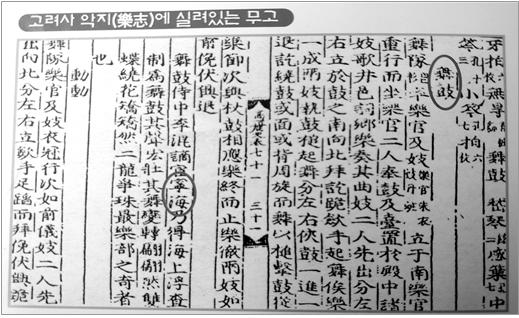 고려사 악지(樂志)에 실려있는 무고
牙拍 六枚 無㝵 舞鼓 嵇琴 觱篥 中
笒 孔十三 小笒 孔七 拍 六枚
舞鼓
舞隊 率樂官及妓 樂官朱衣妓丹粧 立于南樂官
重行而坐樂官二人奉鼓及臺置於殿中諸
妓歌井邑詞鄕樂奏其曲妓二人先出分左
右立於鼓之南向北拜訖跪斂手起舞俟樂
一成兩妓執鼓槌起舞分左右俠鼓一進一
退訖繞鼓或面或背周旋而舞以槌擊鼓從
高麗史七十一 三十一
樂節次與杖鼓相應樂終而止樂徹兩妓如
前俛伏興退
舞鼓侍中李混謫宦寧海乃得海上浮査
制爲舞鼓其聲宏壯其舞變轉翩翩然雙
蝶繞花矯矯然二龍爭珠最樂部之奇者
也
動動
舞隊樂官及妓衣冠行次如前儀妓二人先
出向北分左右立斂手足蹈而拜俛伏興跪